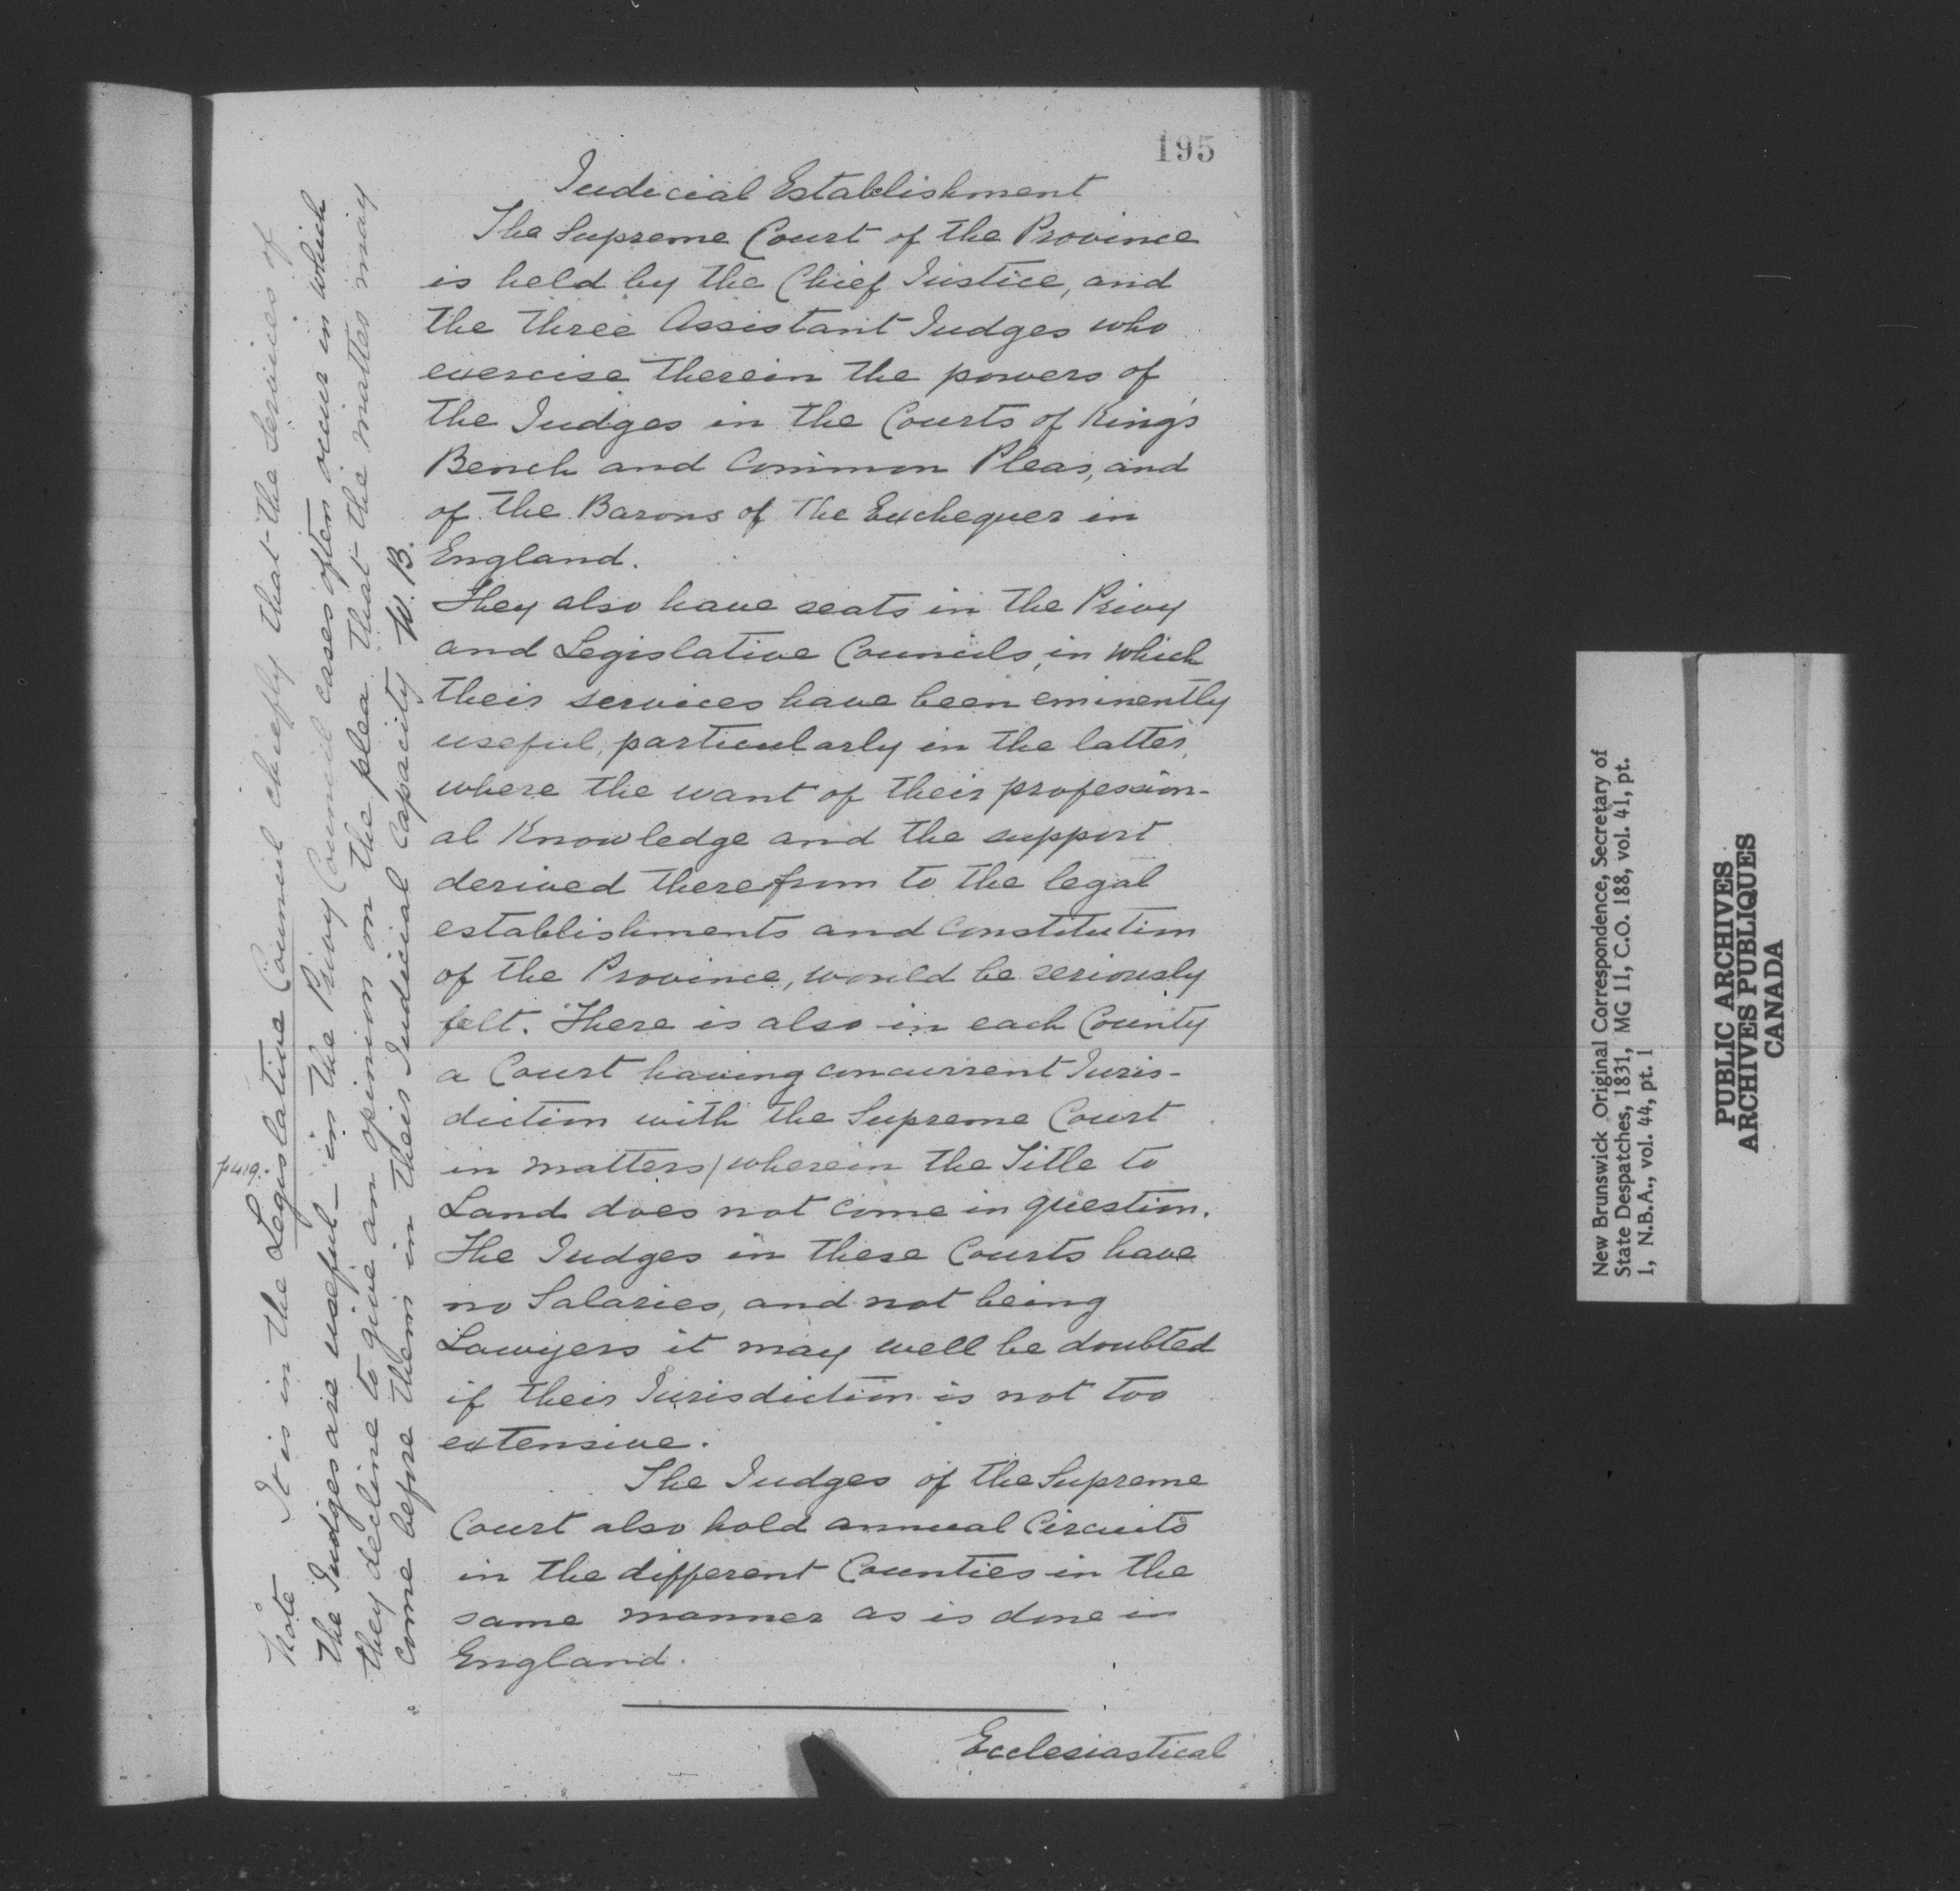 195
Judicial Establishment
The Supreme Court of the Province
is held by the Chief Justice, and
the three Assistant Judges who
exercise therein the powers of
the Judges in the Courts of King's
Bench and Common Pleas, and
of the Barons of the Exchequer in
England.
They also have seats in the Privy
and Legislative Councils, in which
their services have been eminently
useful, particularly in the latter,
where the want of their profession-
al Knowledge and the support
derived therefrom to the legal
establishments and Constitution
of the Province, would be seriously
felt. There is also in each County
a Court having concurrent Juris-
diction with the Supreme Court
in matters wherein the Title to
Land does not come in question.
The Judges in these Courts have
no Salaries, and not being
Lawyers it may well be doubted
if their Jurisdiction is not too
extensive.
The Judges of the Supreme
Court also hold annual Circuits
in the different Counties in the
same manner as is done in
England.
Ecclesiastical
Note It is in the Legislative Council chiefly that the Services of
the Judges are useful - in the Privy Council cases often occur in which
they decline to give an opinion on the plea that the matter may
come before them in their Judicial Capacity W. B.
New Brunswick Original Correspondence, Secretary of
State Despatches, 1831, MG 11, C.O. 188, vol. 41, pt.
1, N.B.A., vol. 44, pt. 1
PUBLIC ARCHIVES
ARCHIVES PUBLIQUES
CANADA